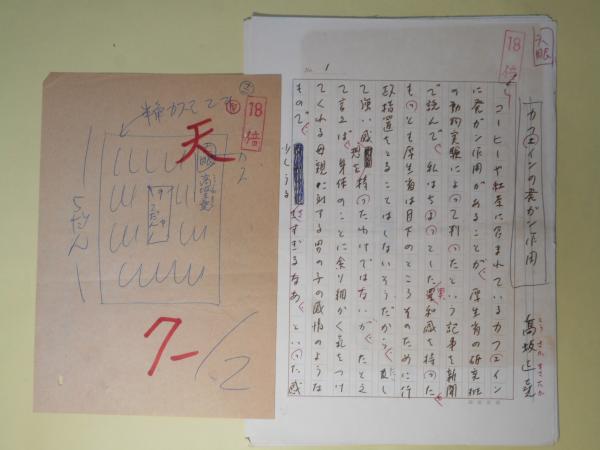 No. 1
18倍
カフェインの発ガン作用
高坂正堯
コーヒーや紅茶に含まれているカフェイン
に発ガン作用があることが、厚生省の研究班
の動物実験によって判ったという記事を新聞
で読んで、私はちょっとした違和感を持った。
もっとも厚生省は目下のところそのために行
政指置をとることはしないそうだから、
て強い感想を持ったわけではないが、たとえ
て言えば、身体のことに余り細かく気をつけ
てくれる母親に対する男の子の感情のような
もので、少しうるさすぎるなあ、といった感
18倍
天
眼
5だん
7-1/2